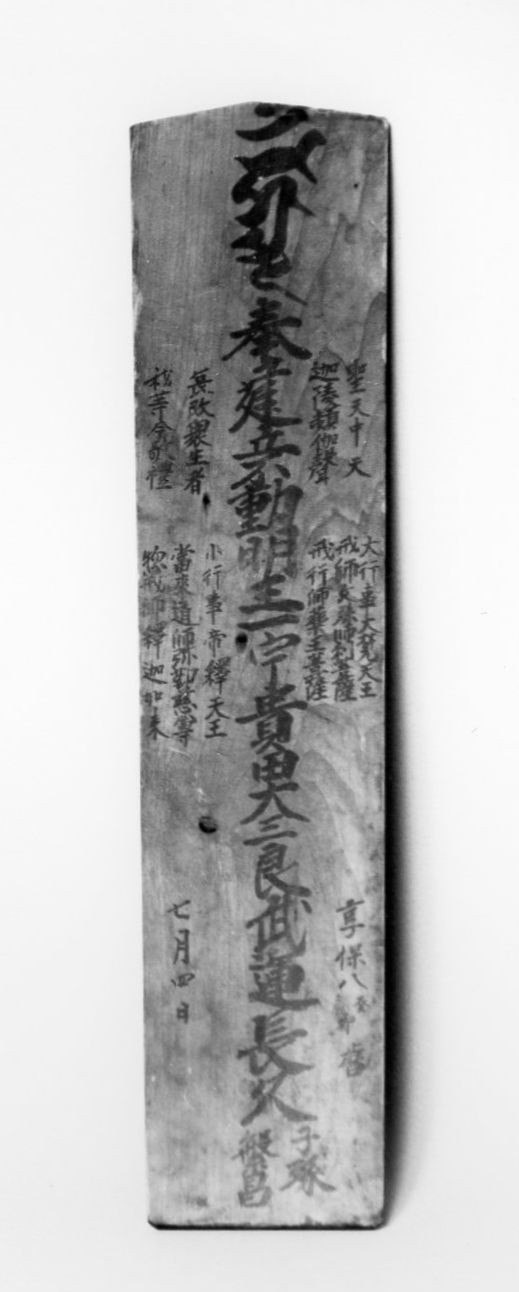 聖天中天
迦陵頻伽聲
大行事大梵天王
戒師文殊師利菩薩
戒行師藥王菩薩
享保八癸卯暦
奉立建立不動明王一宇貴田大三良武運長久
子孫
繁昌
哀敃衆生者
我等今敬禮
小行事帝釋天王
當來導師弥勒慈尊
惣戒師釋迦如来
七月四日